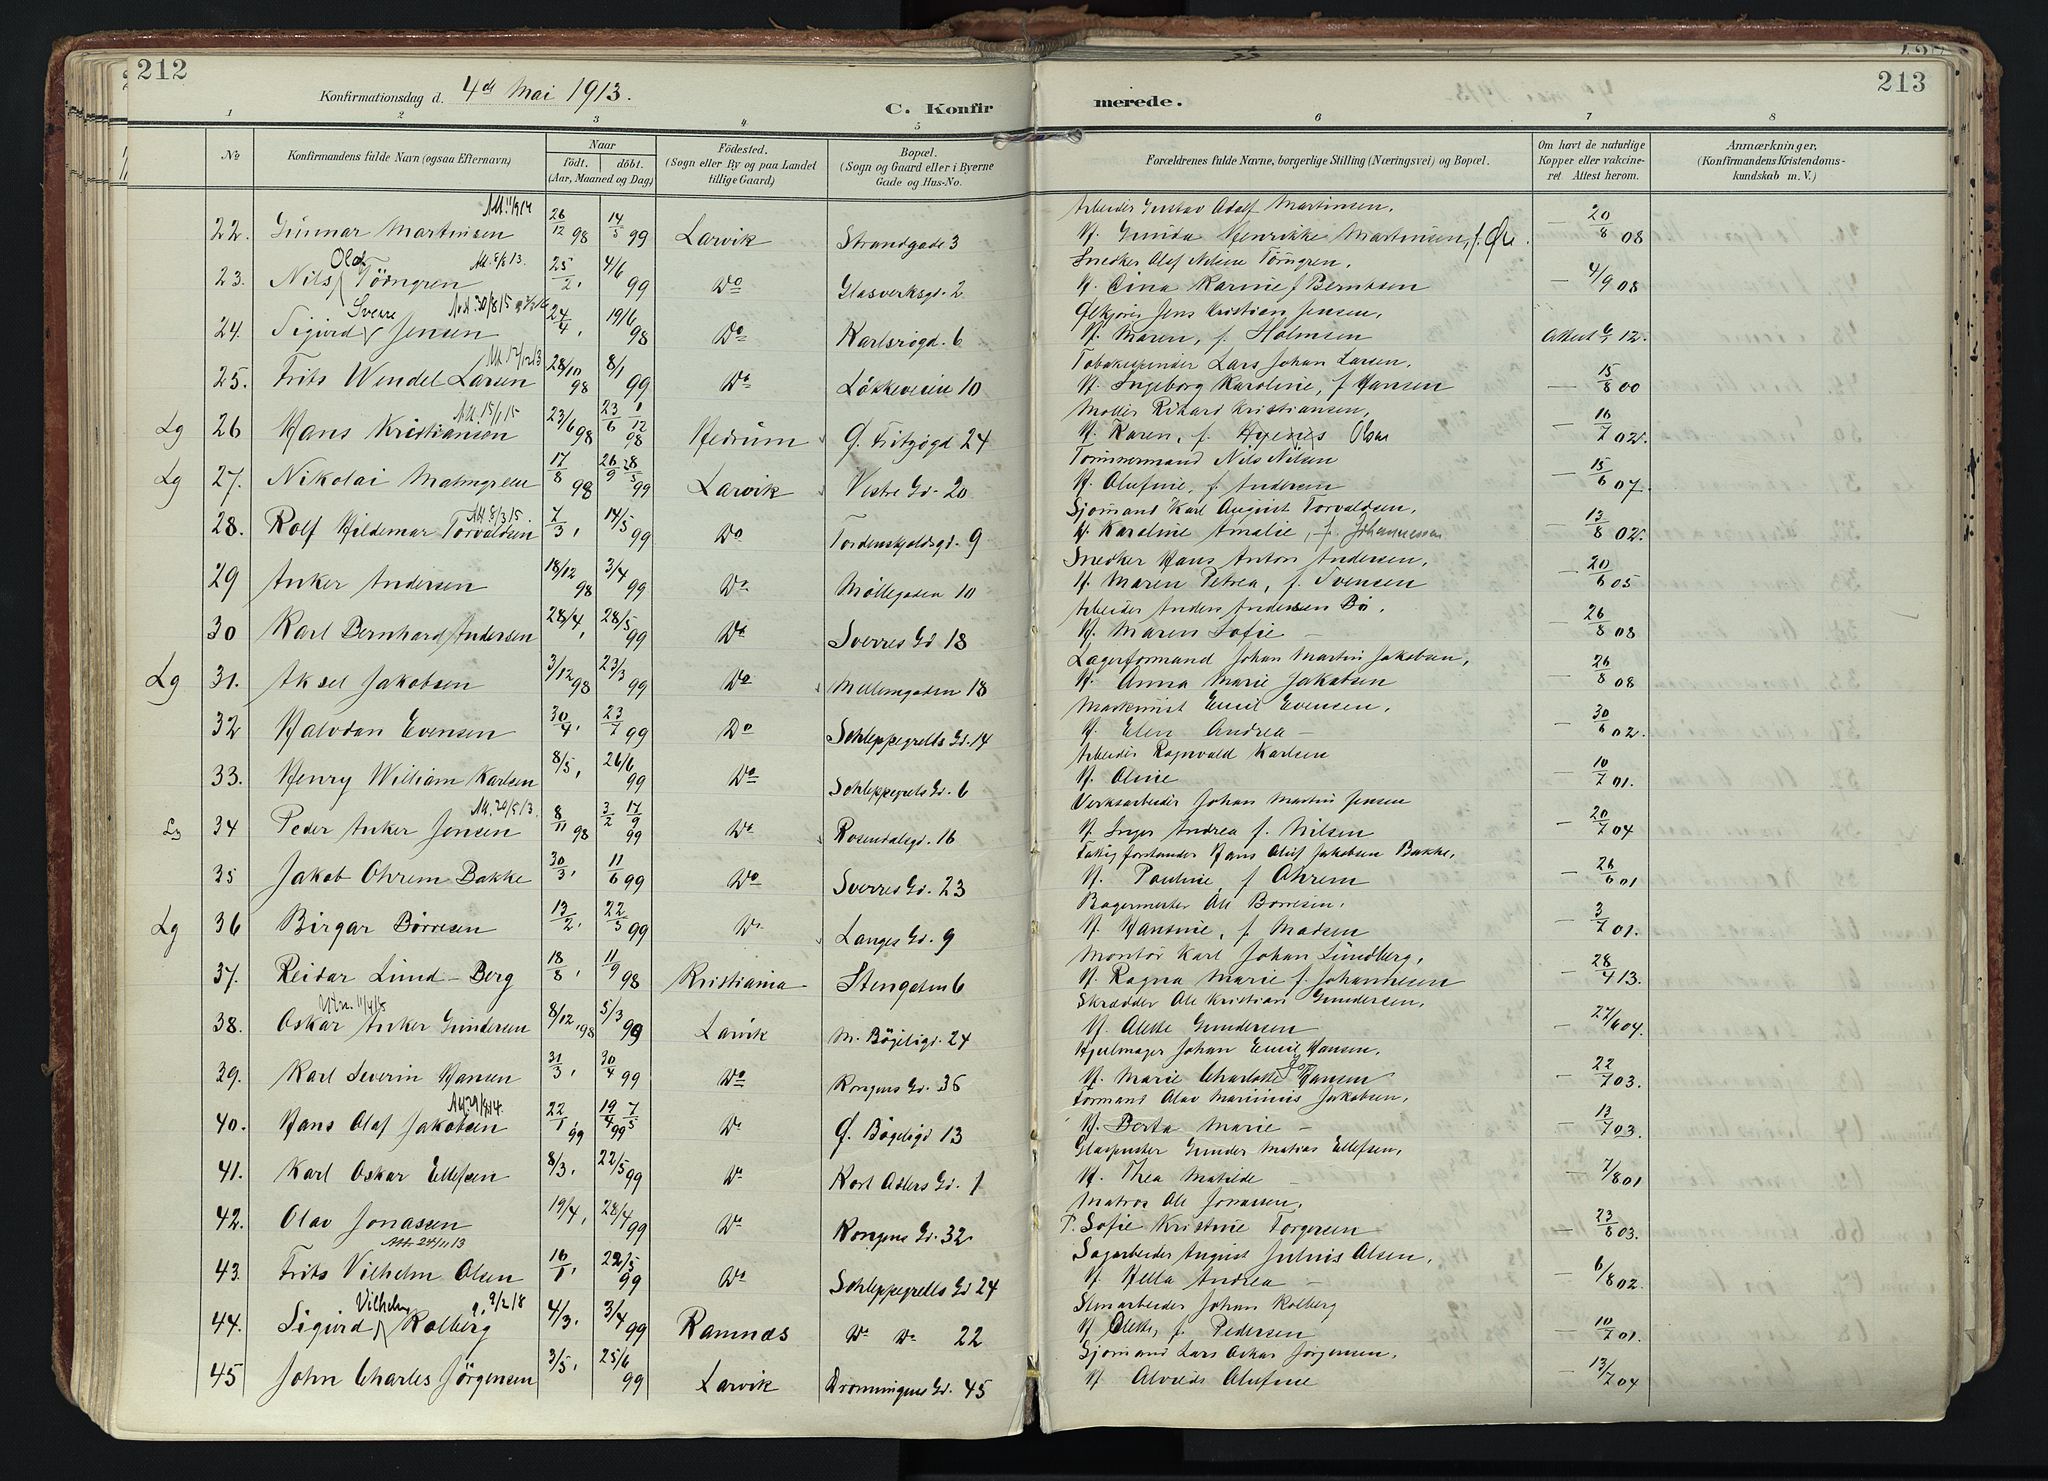 212
213
Konfirmationsdag d. 4de Mai 1913.
C. Konfir
merede.
1 2 3 4 5 6 7 8
No
Konfirmandens fulde Navn (ogsaa Efternavn)
Naar
födt. döbt.
(Aar, Maaned og Dag)
Födested.
(Sogn eller By og paa Landet
tillige Gaard)
Bopæl.
(Sogn og Gaard eller i Byerne
Gade og Hus-No.
Forældrenes fulde Navne, borgerlige Stilling (Næringsvei) og Bopæl.
Om havt de naturlige
Kopper eller vakcine-
ret. Attest herom.
Anmærkninger,
(Konfirmandens Kristendoms-
kundskab m. V.)
Arbeider Gustav Adolf Martinsen,
22. Gunnar Martinsen 26/12 98 14/5 99 Larvik Strandgade 3 H. Gunda Henrikke Martinsen, — 20/8 08
Olaf Att. 8/8 13. Snedker Olaf Nilsen Törngren,
23. Nils Törngren 25/2, 4/6 99 Do Glasverksgd. 2 H. Karine f Berntsen — 4/9 08
Sverre Jens Kristian Jensen,
24. Sigurd Jensen 24/4, 19/6 98 Do Karlsrogd. 6 H. Maren, f. Holmsen Attest 12.
Att. 12/12 13 Tobakspinder Lars Johan Larsen,
25. Frits Wendel Larsen 28/10 98 8/1 99 Do Lökkeveien 10 H. Ingeborg Karoline, f Hansen — 15/8 00
Att. 15/1 15 Möller Rikard Kristiansen,
Lg 26 Hans Kristiansen 23/6 98 23/6 1/12 98 Hedrum Ö. Fritzögd 24 H. Karen, f. — 16/7 02.
Tömmermand Nils Nilsen
Lg 27. Nikolai Malmgren 17/8 98 26/9 28/5 99 Larvik Vestre Gd. 20 H. Olufine, f. Andersen — 15/6 07.
Att. 8/3 15 Sjömand Karl August Torvaldsen,
28. Rolf Hildemar Torvaldsen 7/3, 14/5 99 Do Tordenskjoldsgd. 9 H. Karoline Amalie, f. Johannessen — 13/8 02.
Snedker Hans Anton Andersen,
29 Anker Andersen 18/12 98 3/4 99 Do Möllegaden 10 H. Maren Petrea, f. Svensen — 20/6 05
Arbeider Anders Andersen Bö,
30 Karl Bernhard Andersen 28/4, 28/5 99 Do Sverres Gd 18 H. Maren Sofie — — 26/8 08
Lagerformand Johan Martin Jakobsen,
Lg 31. Aksel Jakobsen 3/12 98 23/3 99 Do Mellemgaden 18 H. Anna Marie Jakobsen — 26/8 08
Maskinist Emil Evensen,
32 Halvdan Evensen 30/4, 23/7 99 Do Schleppegrells Gd. 14 H. Elen Andrea — — 30/6 02.
Arbeider Ragnvald Karlsen
33. Henry William Karlsen 8/5, 26/6 99 Do Schleppegrels Gd. 6 H. Aline — 10/7 01.
Att. 20/5 13. Verksarbeider Johan Martin Jensen
Lg 34 Peder Anker Jensen 8/11 98 3/2 17/9 99 Do Rosendalsgd. 16 H. Inger Andrea f. Nilsen — 20/7 04
Hans Oluf Jakobsen Bakke,
35 Jakob Ohrem Bakke 30/3, 11/6 99 Do Sverres Gd. 23 H. Pauline, f Ohrem — 26/6 01
Bagermester Ole Börresen,
Lg 36 Birgar Börresen 13/2, 22/5 99 Do Langes Gd. 9 H. Hansine, f. Madsen — 3/7 01.
Montör Karl Johan Lundberg,
37. Reidar Lund-Berg 18/8, 11/9 98 Kristiania Stengaten 6 H. Ragna Marie f Johannesen — 28/4 13.
Skrædder Ole Kristian Gundersen,
38. Oskar Anker Gundersen 8/12, 98 5/3 99 Larvik N. Bögeligd. 24 H. Alette Gundersen — 27/6 04.
Hjulmager Johan Emil Hansen,
39. Karl Severin Hansen 31/3, 30/4 99 Do Kongens Gd. 36 H. Marie Charlotte Hansen — 22/7 03.
Formand Olav Marinius Jakobsen,
40. Hans Olaf Jakobsen 22/1 99 19/4 7/5 99 Do Ö. Bögeligd 13 H. Berta Marie — — 13/7 03.
Glaspuster Gunder Matias Ellefsen,
41. Karl Oskar Ellefsen 8/3, 22/5 99 Do Karl Adlers Gd. 1 H. Thea Matilde — — 7/8 01
Matros Ole Jonassen,
42. Olav Jonassen 19/4, 28/4 99 Do Kongens Gd. 32 P. Sofie Kristine Torgersen — 23/8 03.
Att. 24/11 13 Sagarbeider August Julius Olsen,
43. Frits Vilhelm Olsen 16/1, 22/5 99 Do Schleppegrells Gd 24 H. Hella Andrea — — 6/8 02.
Vilhelm 9/2 18 Stenarbeider Johan Kolberg
44. Sigurd Kolberg 4/3, 3/4 99 Ramnæs Do Do 22 H. Alette, f. Pedersen — 10/7 01.
Sjömand Lars Oskar Jörgensen,
45 John Charles Jörgensen 3/5, 25/6 99 Larvik Dronningens Gd. 45 H. Alvilde Olufine — 13/7 04